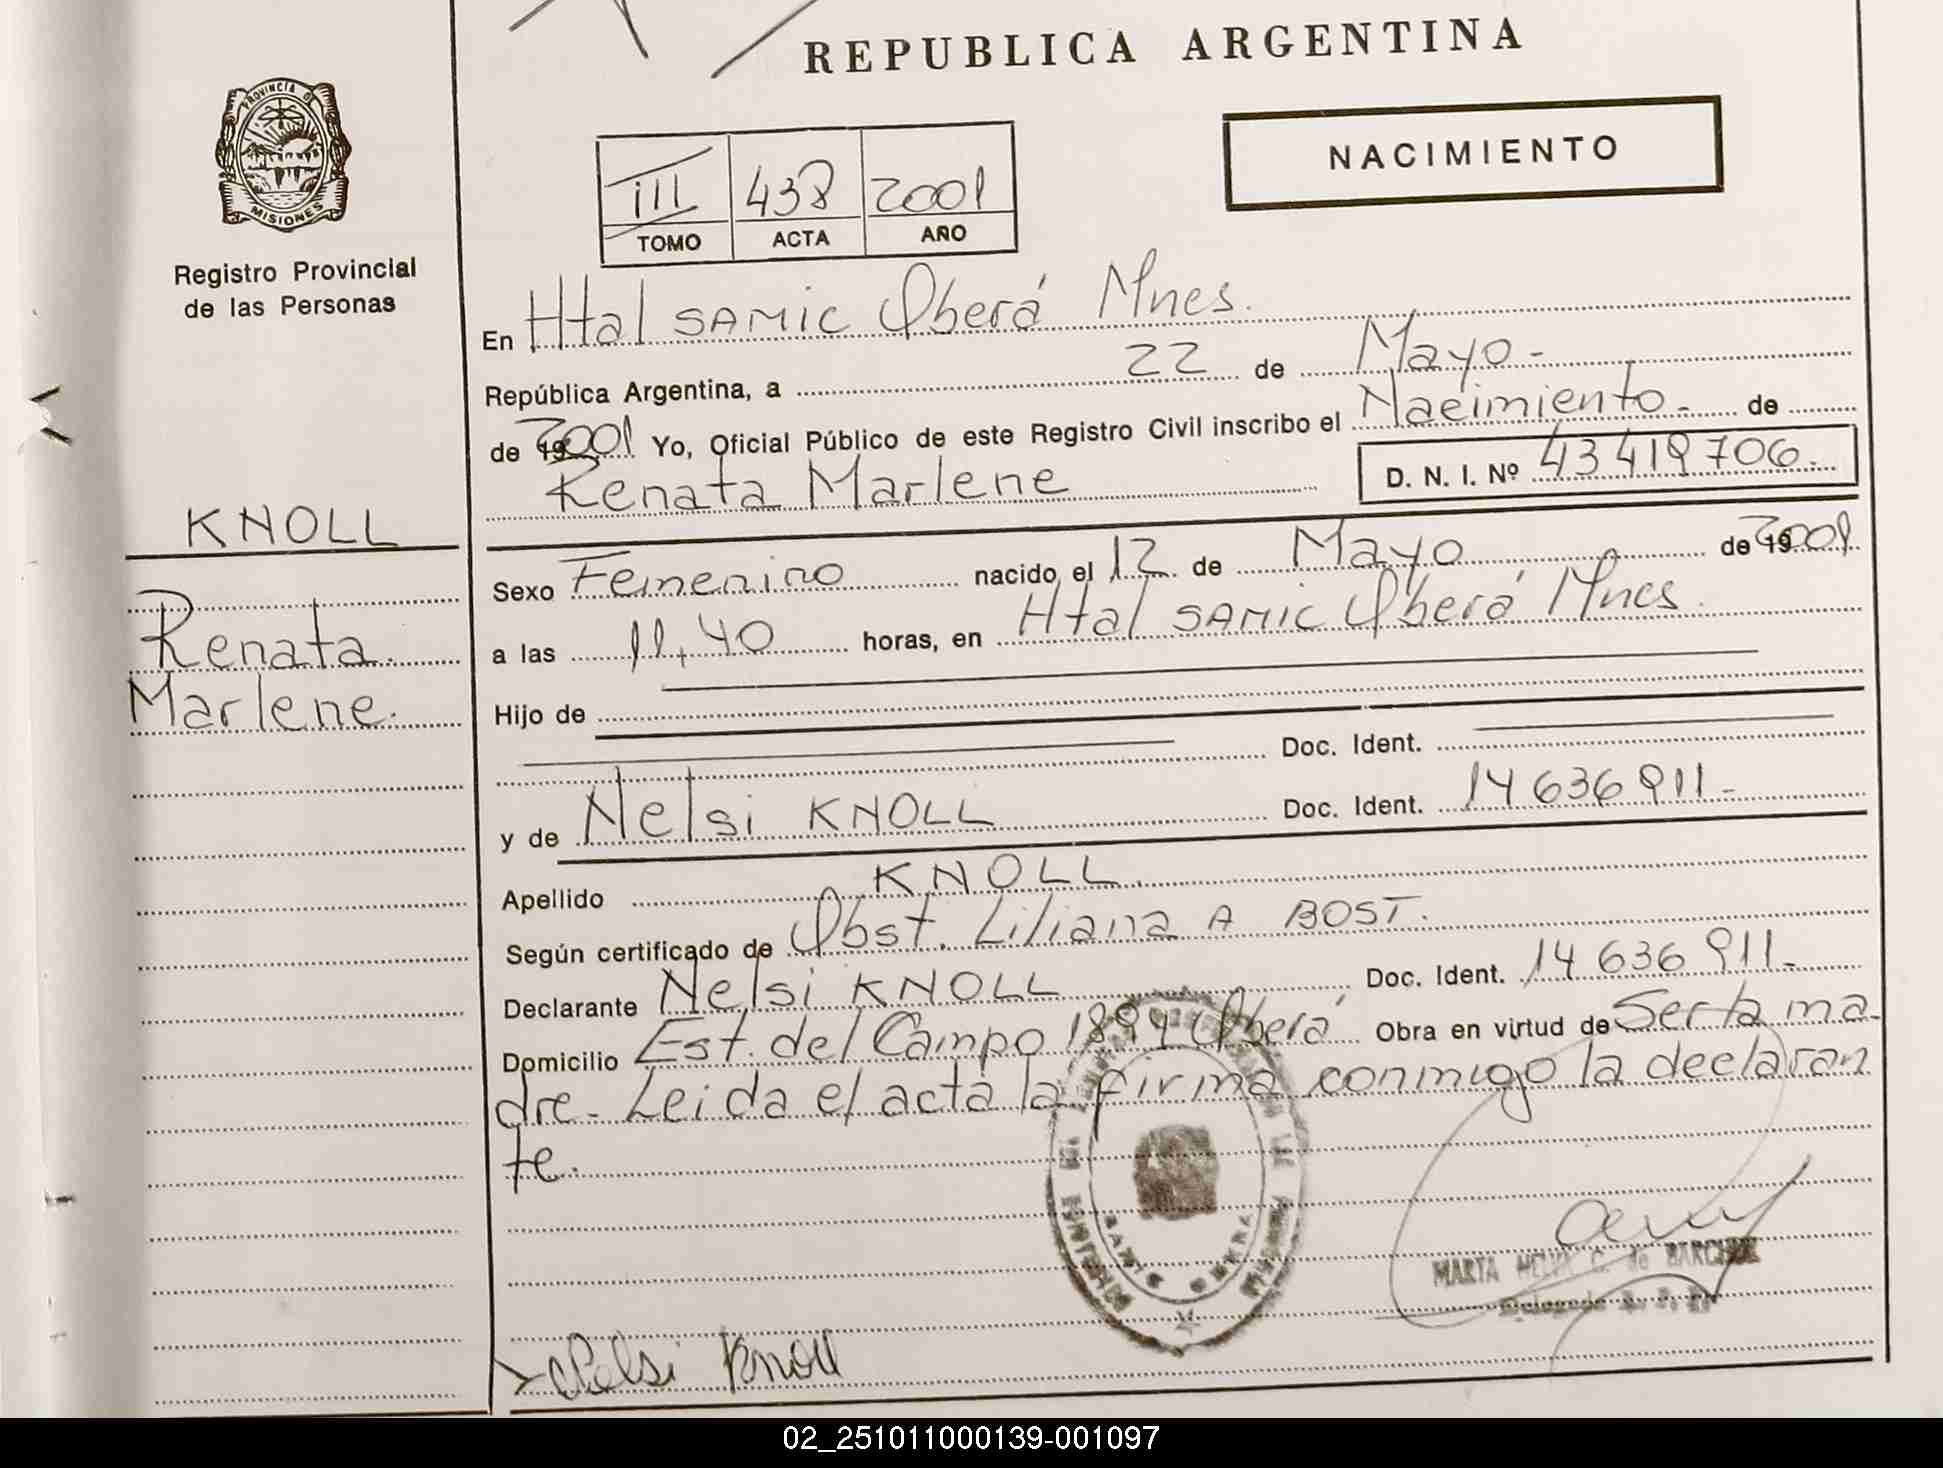 REPUBLICA ARGENTINA
NACIMIENTO
PROVINCIA DE
MISIONES
Registro Provincial
de las Personas
III 438 2001
TOMO ACTA AÑO
En Htal SAMIC Oberá Mnes.
República Argentina, a 22 de Mayo-
de 19 2001 Yo, Oficial Público de este Registro Civil inscribo el Nacimiento- de
Renata Marlene D. N. I. Nº 43419706.
KNOLL
Renata
Marlene.
Sexo Femenino nacido el 12 de Mayo de 19 2001
a las 11,40 horas, en Htal SAMIC Oberá Mnes.
Hijo de
Doc. Ident.
y de Nelsi KNOLL Doc. Ident. 14 636 911-
Apellido KNOLL.
Según certificado de Obst. Liliana A BOST.
Declarante Nelsi KNOLL Doc. Ident. 14 636 911-
Domicilio Est. del Campo 1894 Oberá Obra en virtud de Ser la ma-
dre- Leida el acta la firma conmigo la declaran
te.
MARTA C. de
Nelsi Knoll
02_251011000139-001097